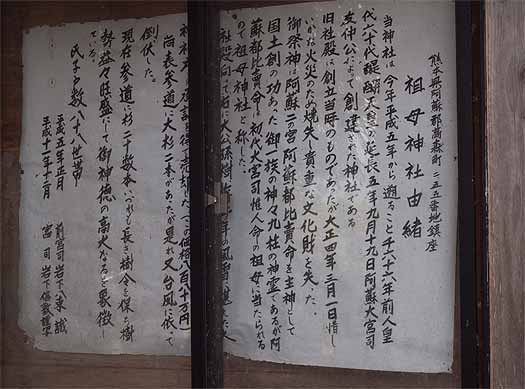 熊本県阿蘇郡高森町二五五番地鎮座
祖母神社由緒
当神社は今年平成五年から遡ること千六十六年前人皇
代六十代醍醐天皇の延長五年九月十九日阿蘇大宮司
友仲公によって創建された神社である
旧社殿は創立当時のものであったが大正四年三月一日惜し
いかな火災のため焼失し貴重な文化財を失った、
御祭神は阿蘇二の宮阿蘇都比賣命を主神として
国土創の功あった御一族の神々九柱の神霊であるが阿
蘇都比賣命は初代大宮司惟人命の祖母に当たられる
ので祖母神社と称した。
社殿向って右に大公孫樹
年の風雨に
売却した
価格八百八十万円
尚表参道に大杉二本があったが是れ又台風に依って
倒伏した。
現在参道に杉二十数本いづれも長い樹令を保た樹
勢益々旺盛にして御神徳の高大なるを象徴し
ている。
氏子戸数八十八世帯
平成五年正月
前宮司岩下東誠
平成十一年十二月
宮司岩下